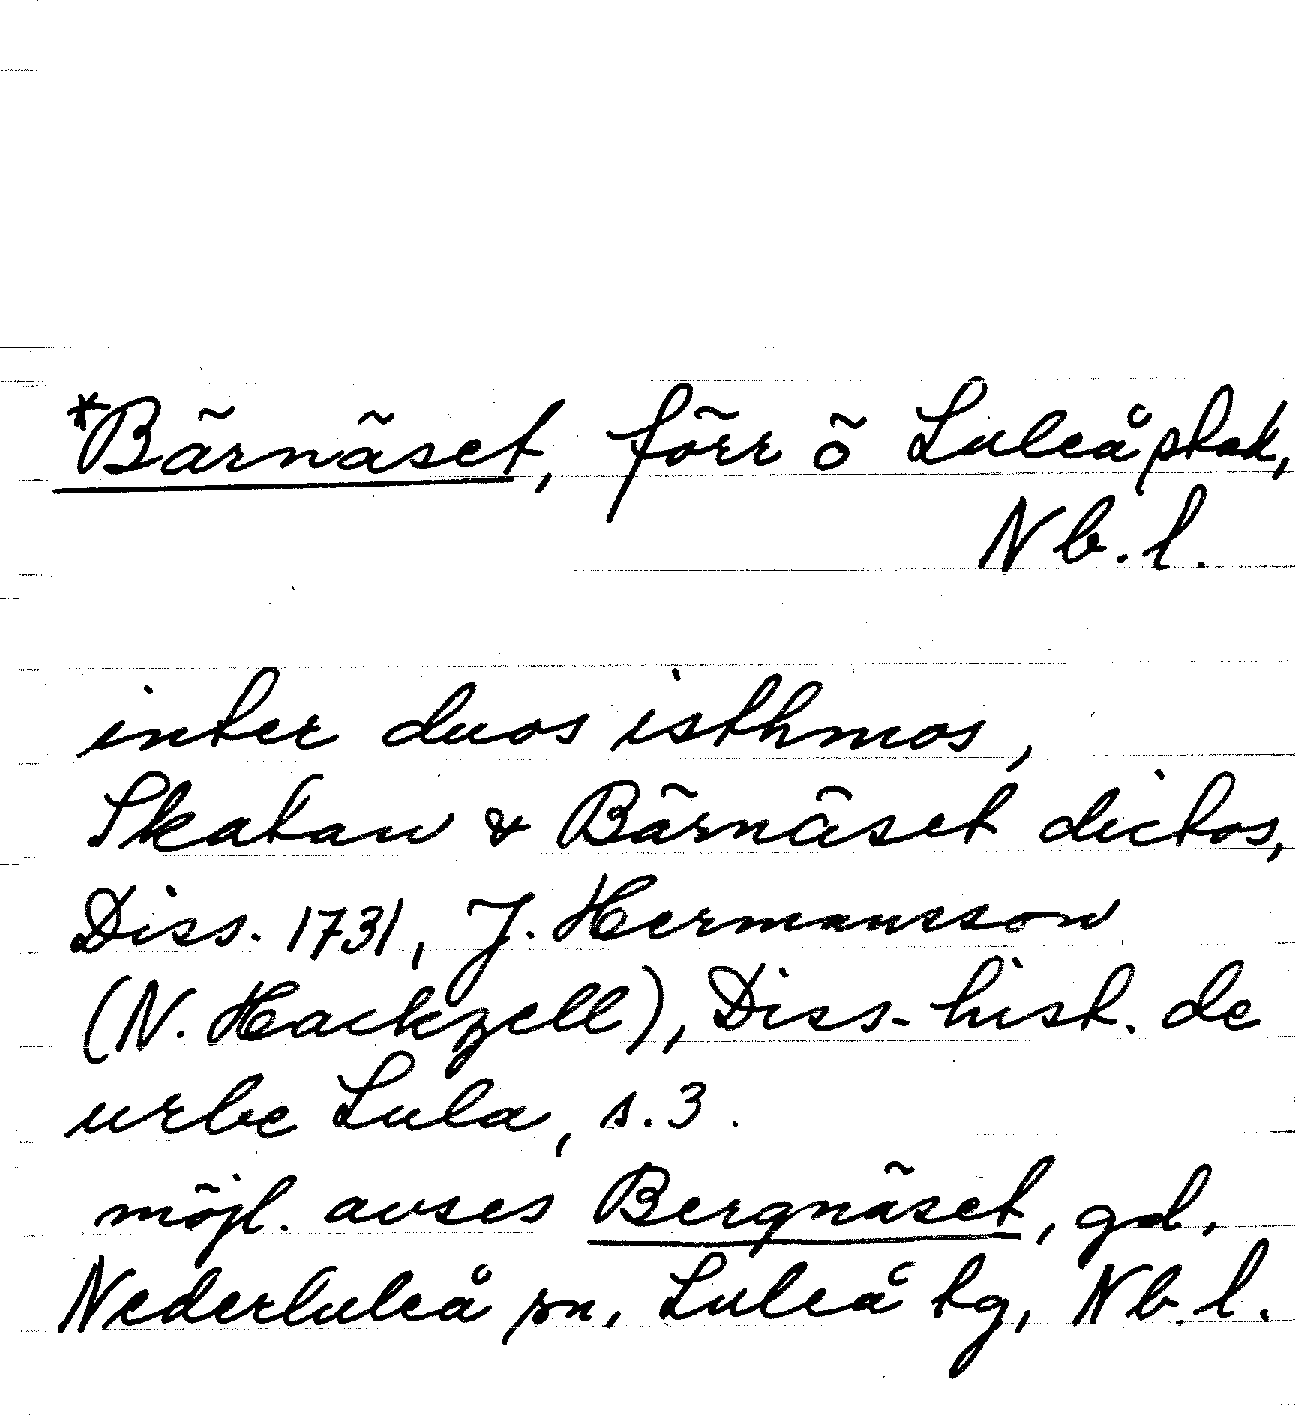 *Bärnäset, förr ö Luleå stad,
Nb. l.
inter duos isthmos,
Skatan & Bärnäset dictos,
Diss. 1731, J. Hermansson
(N. Hackzell), Diss. hist. de
urbe Lula, s. 3.
möjl. avses Bergnäset, gd,
Nederluleå sn, Luleå tg, Nb. l.